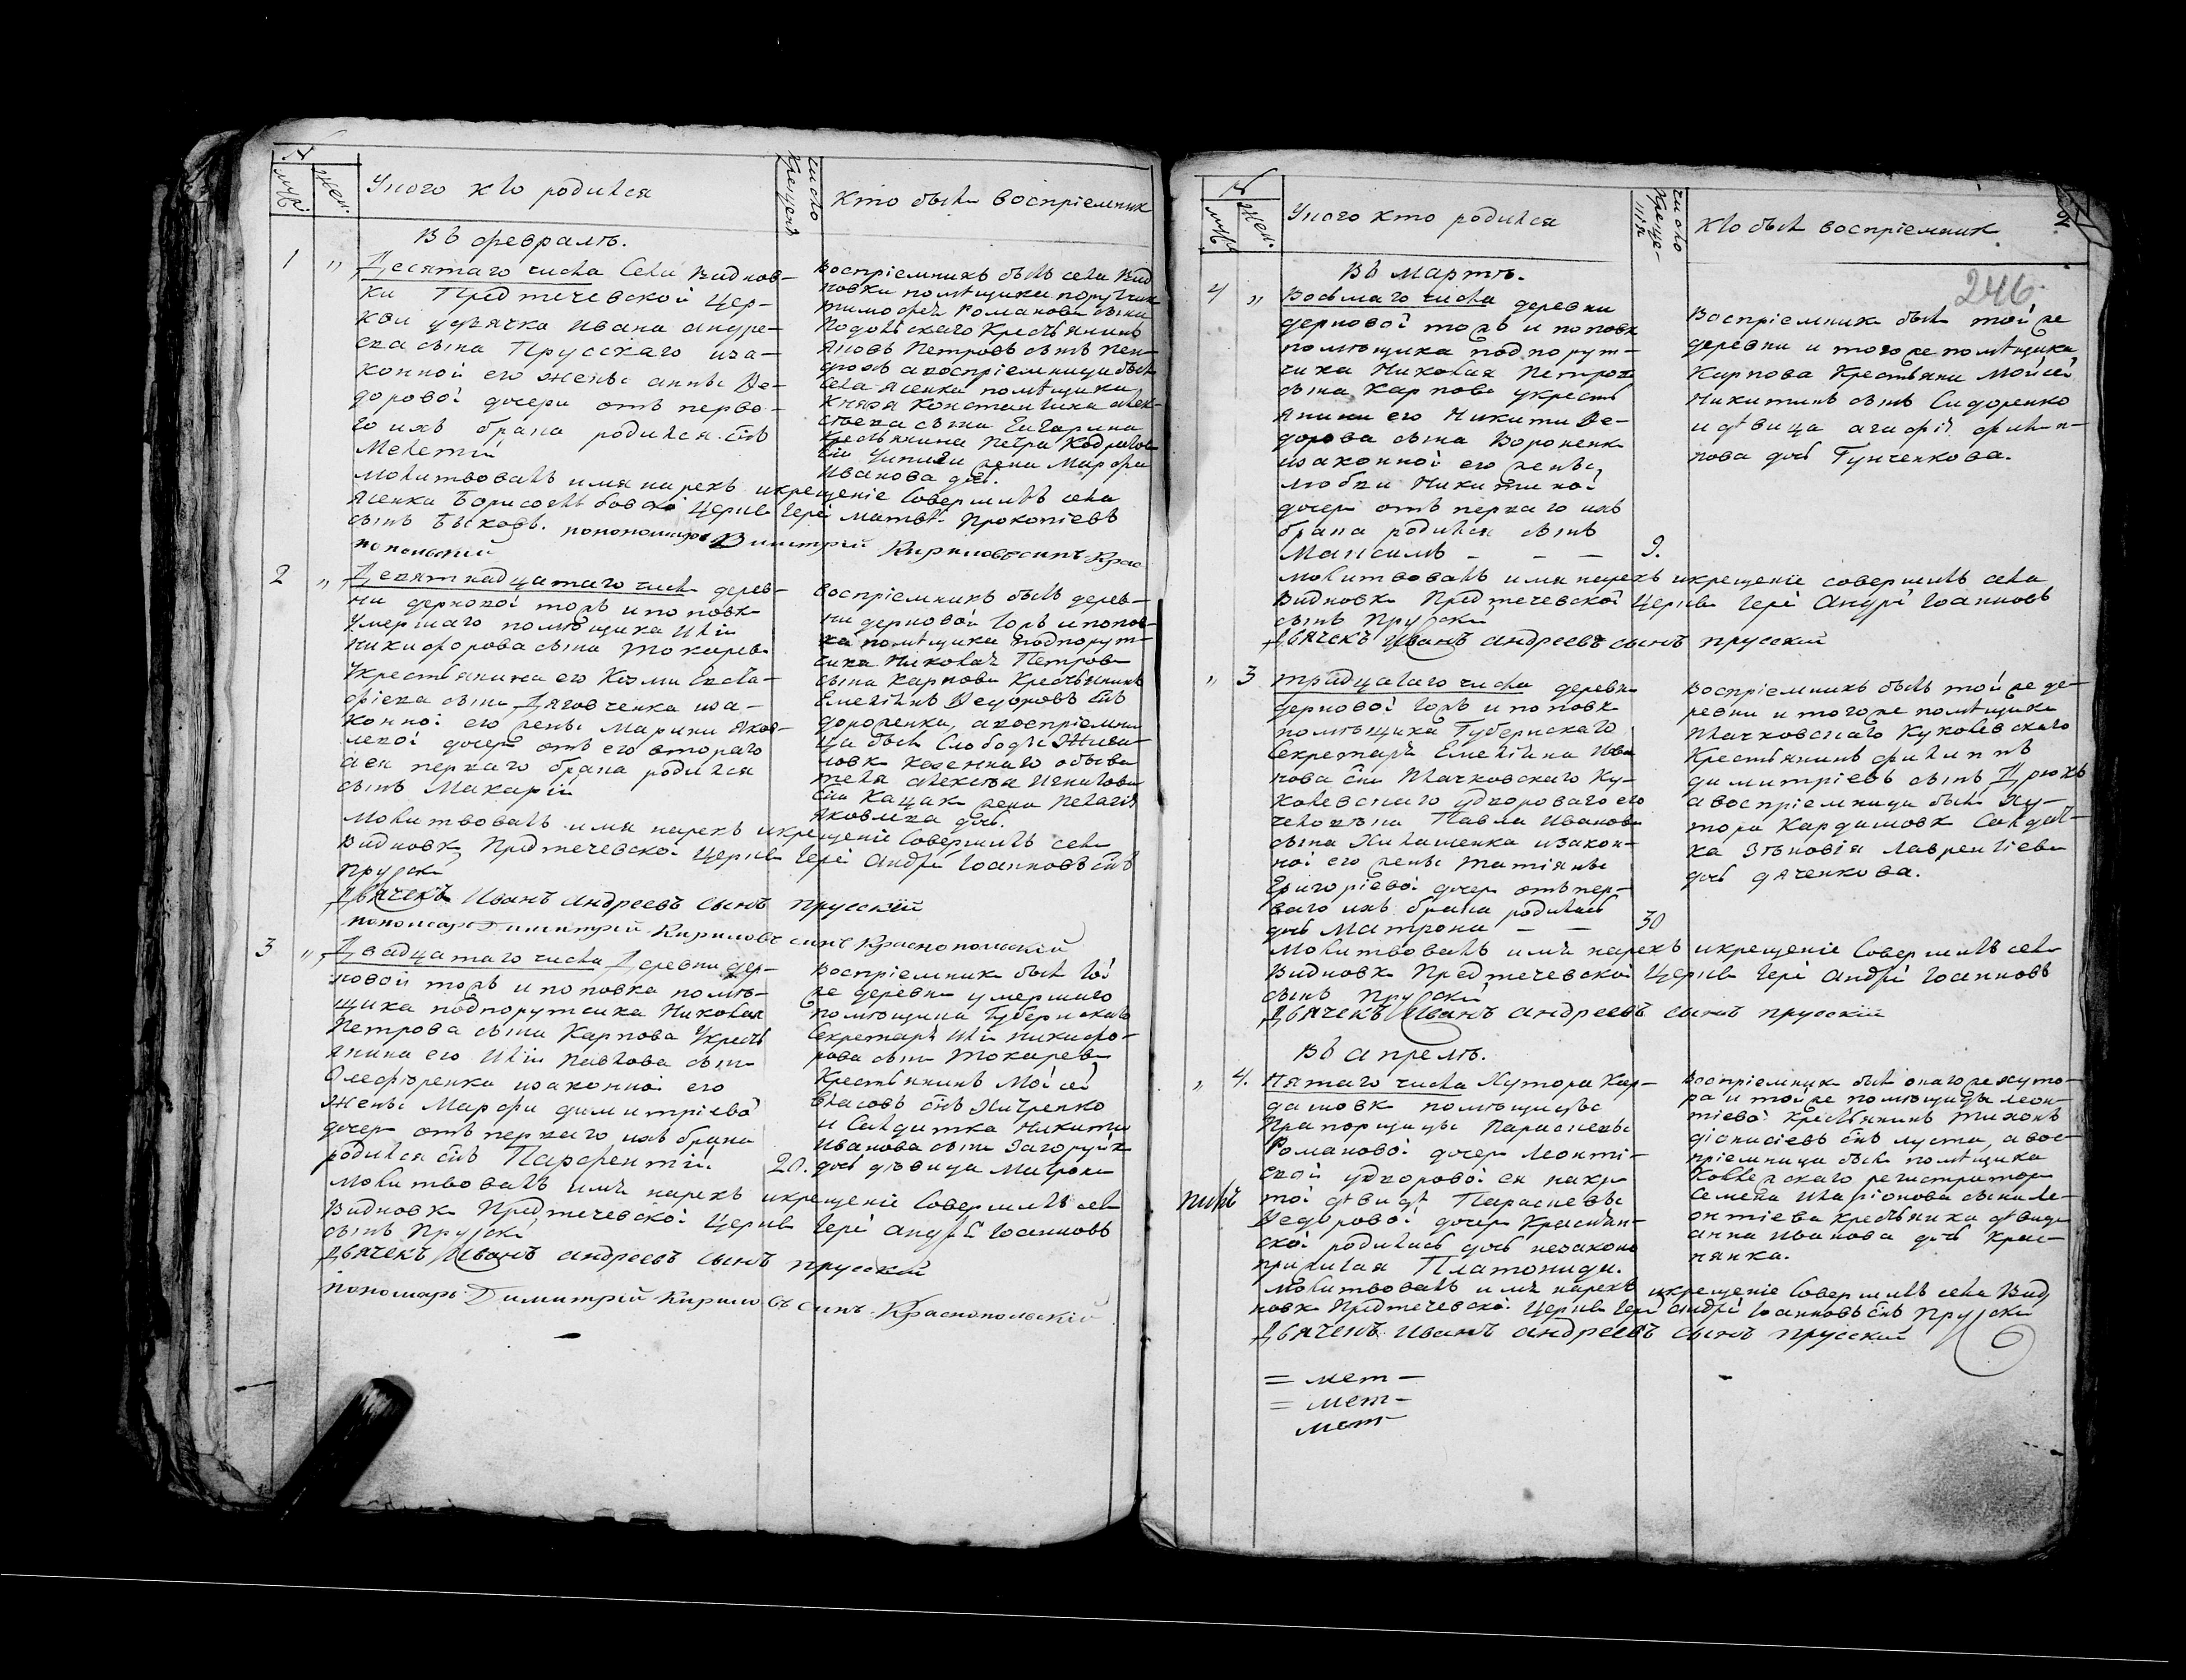 №
муж:
жен:
У кого кто родился
число крещенія
Кто былъ воспріемник
Въ февралѣ.
1 „ Десятаго числа Села Виднов-
ки Предтечевской Цер-
кви удьячка Ивана андре-
ева сына Прусскаго иза-
конной его жены анны Ѳе-
доровой дочери отъ перво-
го ихъ брака родился сынъ
Мелетій
воспріемникъ былъ села Вид
новки помѣщика поручика
тимофея Романова сына
Подольскаго Крестьянинъ
Яковъ Петровъ сынъ
авоспріемница была
села Ясенка помѣщика
Князя Константина алек-
сѣева сына
крестьянина Петра
жена Марфа
Иванова дочь.
Молитвовалъ имя нарекъ икрещеніе Совершилъ села
Ясенка Борисоглѣбовской Церкви Іерей матвѣй Прокопіевъ
сынъ Быковъ. пономарь Димитрій Кириловъ синъ Крас
нопольскій
2 „ Девятнадцатаго числа дерев-
ни дерновой тожъ ипоповк
Умершаго помѣщика Иліи
никифорова сына Токарева
Укрестьянина его Козми Евста-
фіева сына Дяговченка иза-
конной его жены Марини Яков-
левой дочери отъ его втораго
аея перваго брака родился
сынъ Макарій
воспріемникъ былъ дерев-
ни дерновой тожъ ипопов-
ка помѣщика подпорут-
чика Николая Петрова
сына Карпова Крестьянинъ
Емеліянъ Ѳедоровъ сынъ
дороленко, авоспріеми
ца была Слободы Жига-
ловк казеннаго обыва
теля алексѣя Игнатова
сына Кацая жена Пелагія
Яковлева дочь.
Молитвовалъ имя нарекъ икрещеніе Совершилъ села
Видновк Предтечевской Церкви Іерей Андрей Іоанновъ сынъ
Прускій
Дьячекъ Иванъ андреевъ сынъ прусскій
пономарь Димитрій Кириловъ синъ Краснопольскій
3 „ Двадцатаго числа Деревни дер-
новой тожъ и поповка помѣ-
щика подпорутчика Николая
Петрова сына Карпова Укресть
янина его Иліи Павлова сына
Олефѣренка изаконной его
Жены Марфи димитріевой
дочери отъ перваго ихъ брака
родился сынъ Парфентій. 20.
воспріемник былъ той
же деревни умершаго
помѣщика Губернскаго
Секретаря Иліи никифо-
рова сына Токарева
Крестьянинъ Мойсей
Власовъ сынъ
и Салдатка Никити
Иванова сына Загоруйк
дочь дѣвица Матрона
Молитвовалъ имя нарекъ икрещеніе Совершилъ села
Видновк Предтечевской Церкви Іерей Андрей Іоанновъ
сынъ Прускій
Дьячекъ Иванъ андреевъ сынъ прусскій
пономарь Димитрій Кириловъ синъ Краснопольскій
№
муж
жен:
У кого кто родился
число крещенія
Кто былъ воспріемник
246.
Въ мартѣ.
4 „ Восьмаго числа деревни
дерновой тожъ и поповк
помѣщика подпорут-
чика Николая Петрова
сына Карпова укресть
янина его Никити Ѳе-
дорова сына Вороненк
изаконной его жены
любви Никитиной
дочери отъ перваго ихъ
брака родился сынъ
Максимъ - - - 9.
Воспріемник былъ той же
деревни и тогоже помѣщика
Карпова Крестьянин Мойсей
Никитинъ сынъ Сидоренко
и дѣвица агафія филип-
пова дочь Гунченкова.
Молитвовалъ имя нарекъ икрещеніе совершилъ села
Видновк Предтечевской Церкви Іерей Андрей Іоанновъ
сынъ Прускій
Дьячекъ Иванъ андреевъ сынъ прусскій
„ 3 тридцатаго числа деревни
дерновой тожъ ипоповк
помѣщика Губернскаго
Секретаря Емеліяна Ива
нова сына Плачковскаго Ку-
колевскаго удвороваго его
человѣка Павла Иванова
сына изакон-
ной его жены татіяны
Григоріевой дочери отъпер-
ваго ихъ брака родилась
дочь Матрона - - 30
Воспріемникъ былъ той же де-
ревни и тогоже помѣщика
Плачковскаго Куколевскаго
Крестьянинъ филиппъ
димитріевъ сынъ Дрюкъ
авоспріемница была Ху-
тора Кардашовк Салдат-
ка Зѣновія лаврентіева
дочь дяченкова.
Молитвовалъ имя нарекъ икрещеніе Совершилъ села
Видновк Предтечевской Церкви Іерей Андрей Іоанновъ
сынъ Прускій
Дьячекъ Иванъ андреевъ сынъ прусскій
Въ апрелѣ.
„ 4. Пятаго числа Хутора Кар-
дашовк помѣщицы
Прапорщицы Параскевы
Романовой дочери Леонтіе-
вой удворовой ея накри
той дѣвицы Параскевы
Ѳедоровой дочери Краснян-
ской родилась дочь незаконо
прижитая Платонида.
Воспріемник былъ онагоже хуто-
ра и тойже помѣщицы леон-
тіевой Крестьянинъ Тихонъ
діонисіевъ сынъ луста, авос-
пріемница была помѣщика
Коллежскаго регистратора
Семена Иларіонова сына Ле-
онтіева крестьянка дѣвица
анна Иванова дочь Крас-
нянка.
Молитвовалъ имя нарекъ икрещеніе Совершилъ села Вид
новк Предтечевской Церкви Іерей Андрей Іоанновъ сынъ Прускій
Дьячекъ Иванъ андреевъ сынъ прусскій
= мет -
= мет -
мет